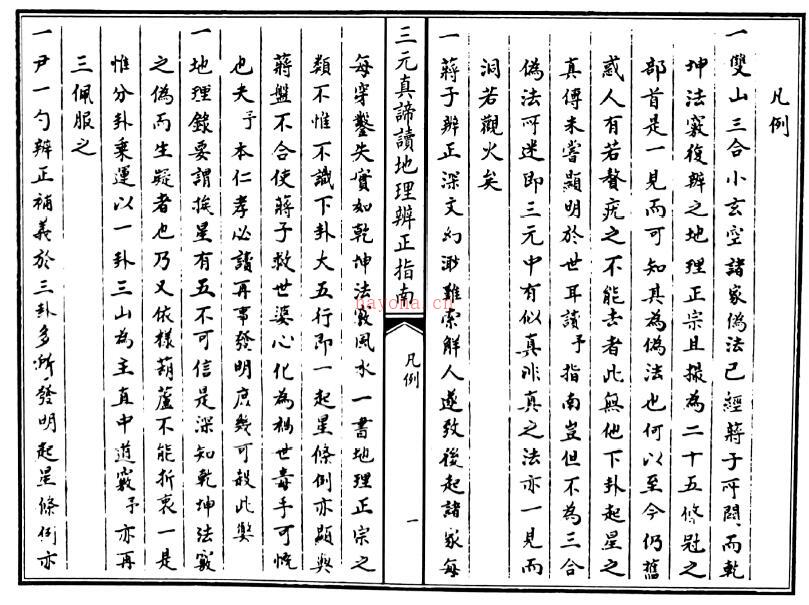 凡例
一雙山三合小玄空諸家偽法已經蔣子所闢而乾
坤法竅復辨之地理正宗且撮為二十五條冠之
部首是一見而可知其為偽法也何以至今仍舊
惑人有若贅疣之不能去者此無他下卦起星之
真傳未嘗顯明於世耳讀予指南豈但不為三合
偽法所迷即三元中有似真非真之法亦一見而
洞若觀火矣
一蔣子辨正深文幻渺難索解人遂致後起諸家每
三元真諦讀地理辨正指南
凡例
一
每穿鑿失實如乾坤法竅風水一書地理正宗之
類不惟不識下卦大五行即一起星條例亦顯與
蔣盤不合使蔣子救世婆心化為禍世毒手可慨
也夫予本仁孝必讀再事發明庶幾可救此弊
一地理錄要謂挨星有五不可信是深知乾坤法竅
之偽而生疑者也乃又依樣葫蘆不能折衷一是
惟分卦乗運以一卦三山為主直中道竅予亦再
三佩服之
一尹一勺辨正補義於三卦多所發明起星條例亦
nayona.cn